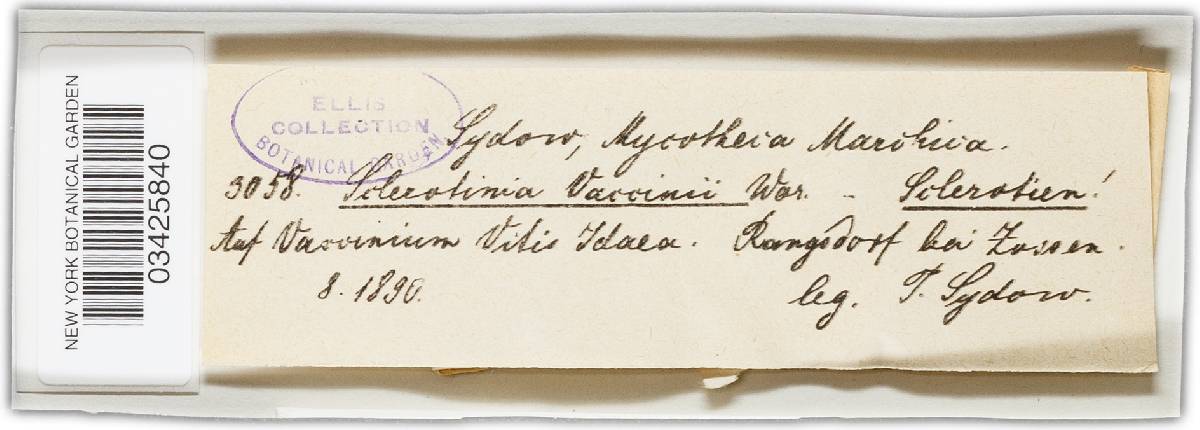 NEW YORK BOTANICAL GARDEN
03425840
ELLIS
COLLECTION
BOTANICAL GARDEN
Sydow, Mycotheca Marchica.
3058. Sclerotinia Vaccinii Wor. - Sclerotien!
Auf Vaccinium Vitis Idaea. Rangsdorf bei Zossen.
8. 1890. leg. P. Sydow.